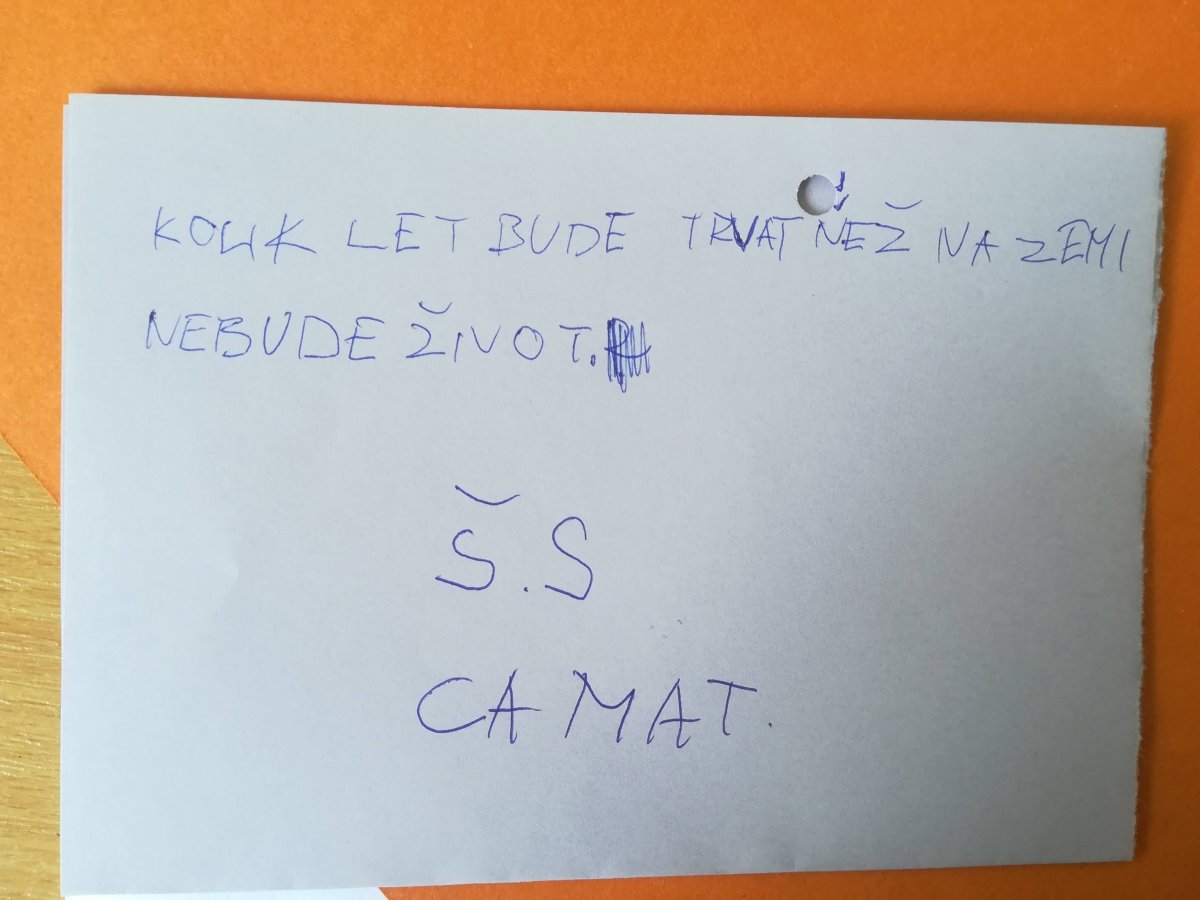 KOLIK LET BUDE TRVAT NEŽ NA ZEMI
NEBUDE ŽIVOT.
Š.S
CA MAT.